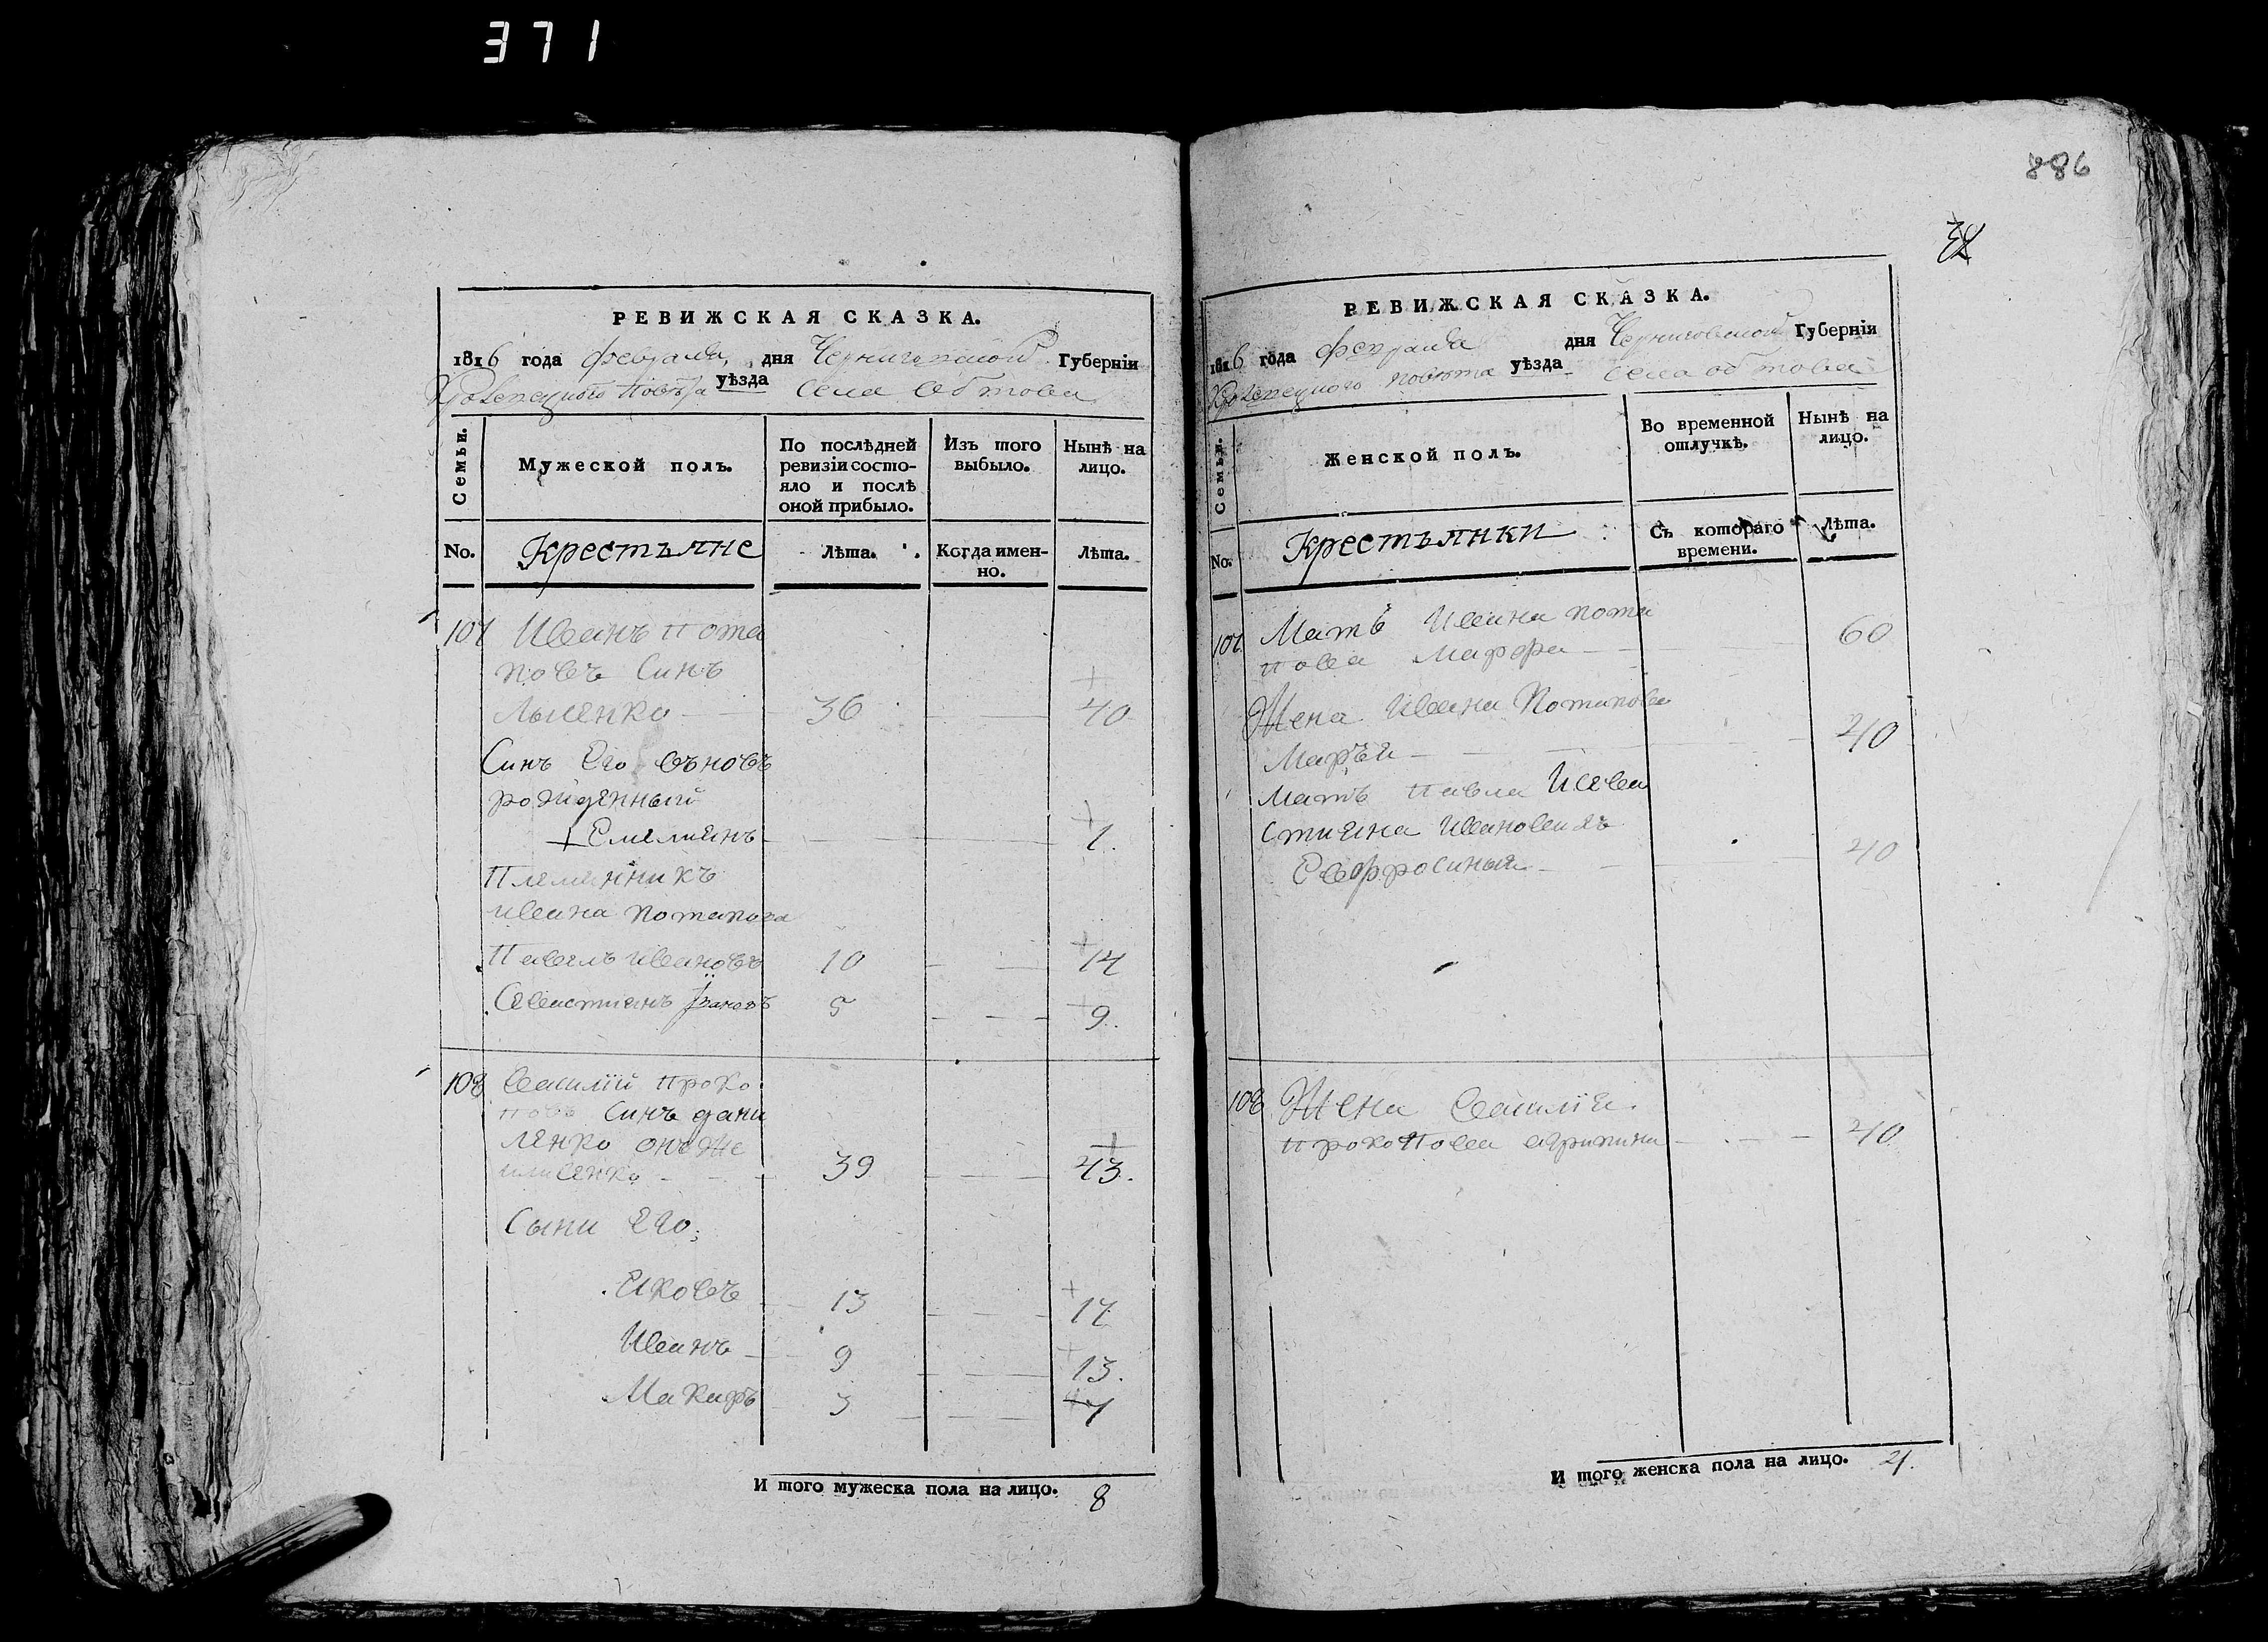 371
886
РЕВИЖСКАЯ СКАЗКА.
1816 года февраля, дня Черниговской Губерніи
Кролевецкого повѣта уѣзда села Обтова
Семьи.
Мужеской полъ.
По послѣдней ревизіи состояло и послѣ оной прибыло.
Изъ того выбыло.
Нынѣ на лицо.
No.
Крестъяне
Лѣта.
Когда именно.
Лѣта.
107 Иванъ Пота
повъ Синъ
36 40
Синъ Его въновъ
рожденный
+ Емелиянъ 1.
Племянникъ
Ивана Потапова
Павелъ Ивановъ 10 14
Севастиянъ Івановъ 5 9.
108 Василій Проко
повъ Синъ дани
ленко онъ же
39 43.
Сыни Его:
Яковъ 13 17
Иванъ 9 13.
Макаръ 3 7
И того мужеска пола на лицо. 8
РЕВИЖСКАЯ СКАЗКА.
1816 года февраля дня Черниговской Губерніи
Кролевецкого повѣта уѣзда села Обтова
Семьи.
Женской полъ.
Во временной отлучкѣ.
Нынѣ на лицо.
No.
Крестъянки
Съ котораго времени.
Лѣта.
107 Матъ Ивана Пота
пова Марфа 60
Жена Ивана Потапова
Маръя 40
Матъ Павла И Сева
стияна Ивановихъ
Евфросиния 40
108 Жена Василія
Прокопова агрипина 40
И того женска пола на лицо. 4.